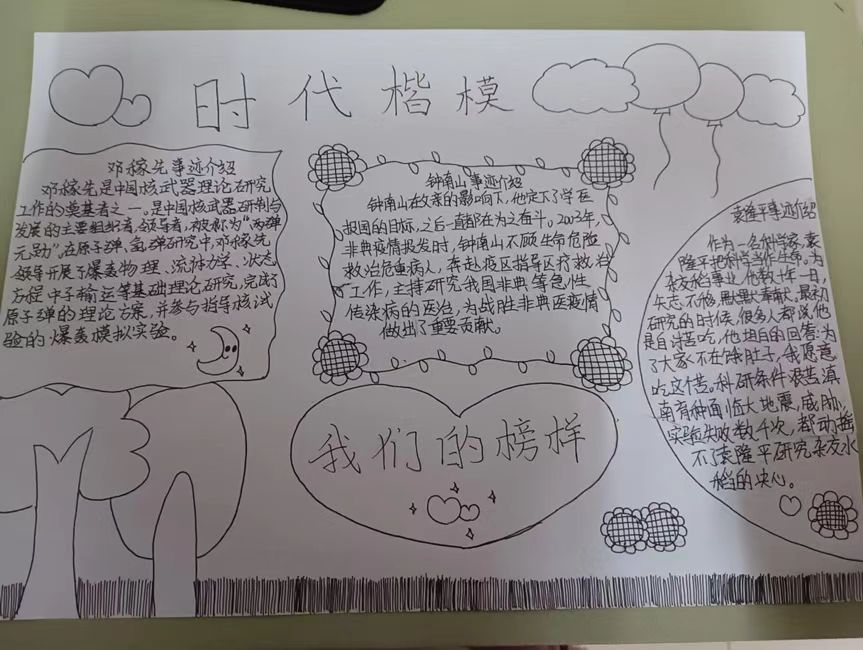 时代楷模
邓稼先事迹介绍
邓稼先是中国核武器理论研究
工作的奠基者之一。是中国核武器研制与
发展的主要组织者,领导者,被称为“两弹
元勋”,在原子弹、氢弹研究中,邓稼先
领导开展了爆轰物理、流体力学、状态
方程中子输运等基础理论研究,完成了
原子弹的理论方案,并参与指导核试
验的爆轰模拟实验。
钟南山事迹介绍
钟南山在父亲的影响下,他定下了学医
报国的目标,之后一直都在为之奋斗。2003年,
非典疫情报发时,钟南山不顾生命危险
救治危重病人,奔赴疫区指导医疗救治
工作,主持研究我国非典等急性
传染病的医治,为战胜非典医疫情
做出了重要贡献。
袁隆平事迹介绍
作为一名科学家,袁
隆平把科学当作生命。为
杂交稻事业,他数十年一日,
矢志不移,默默奉献。最初
研究的时候,很多人都说他
是自讨苦吃,他坦白的回答:为
了大家不在饿肚子,我愿意
吃这个苦。科研条件艰苦滇
南有种面临大地震,威胁,
实验失败数千次,都动摇
不了袁隆平研究杂交水
稻的决心。
我们的榜样